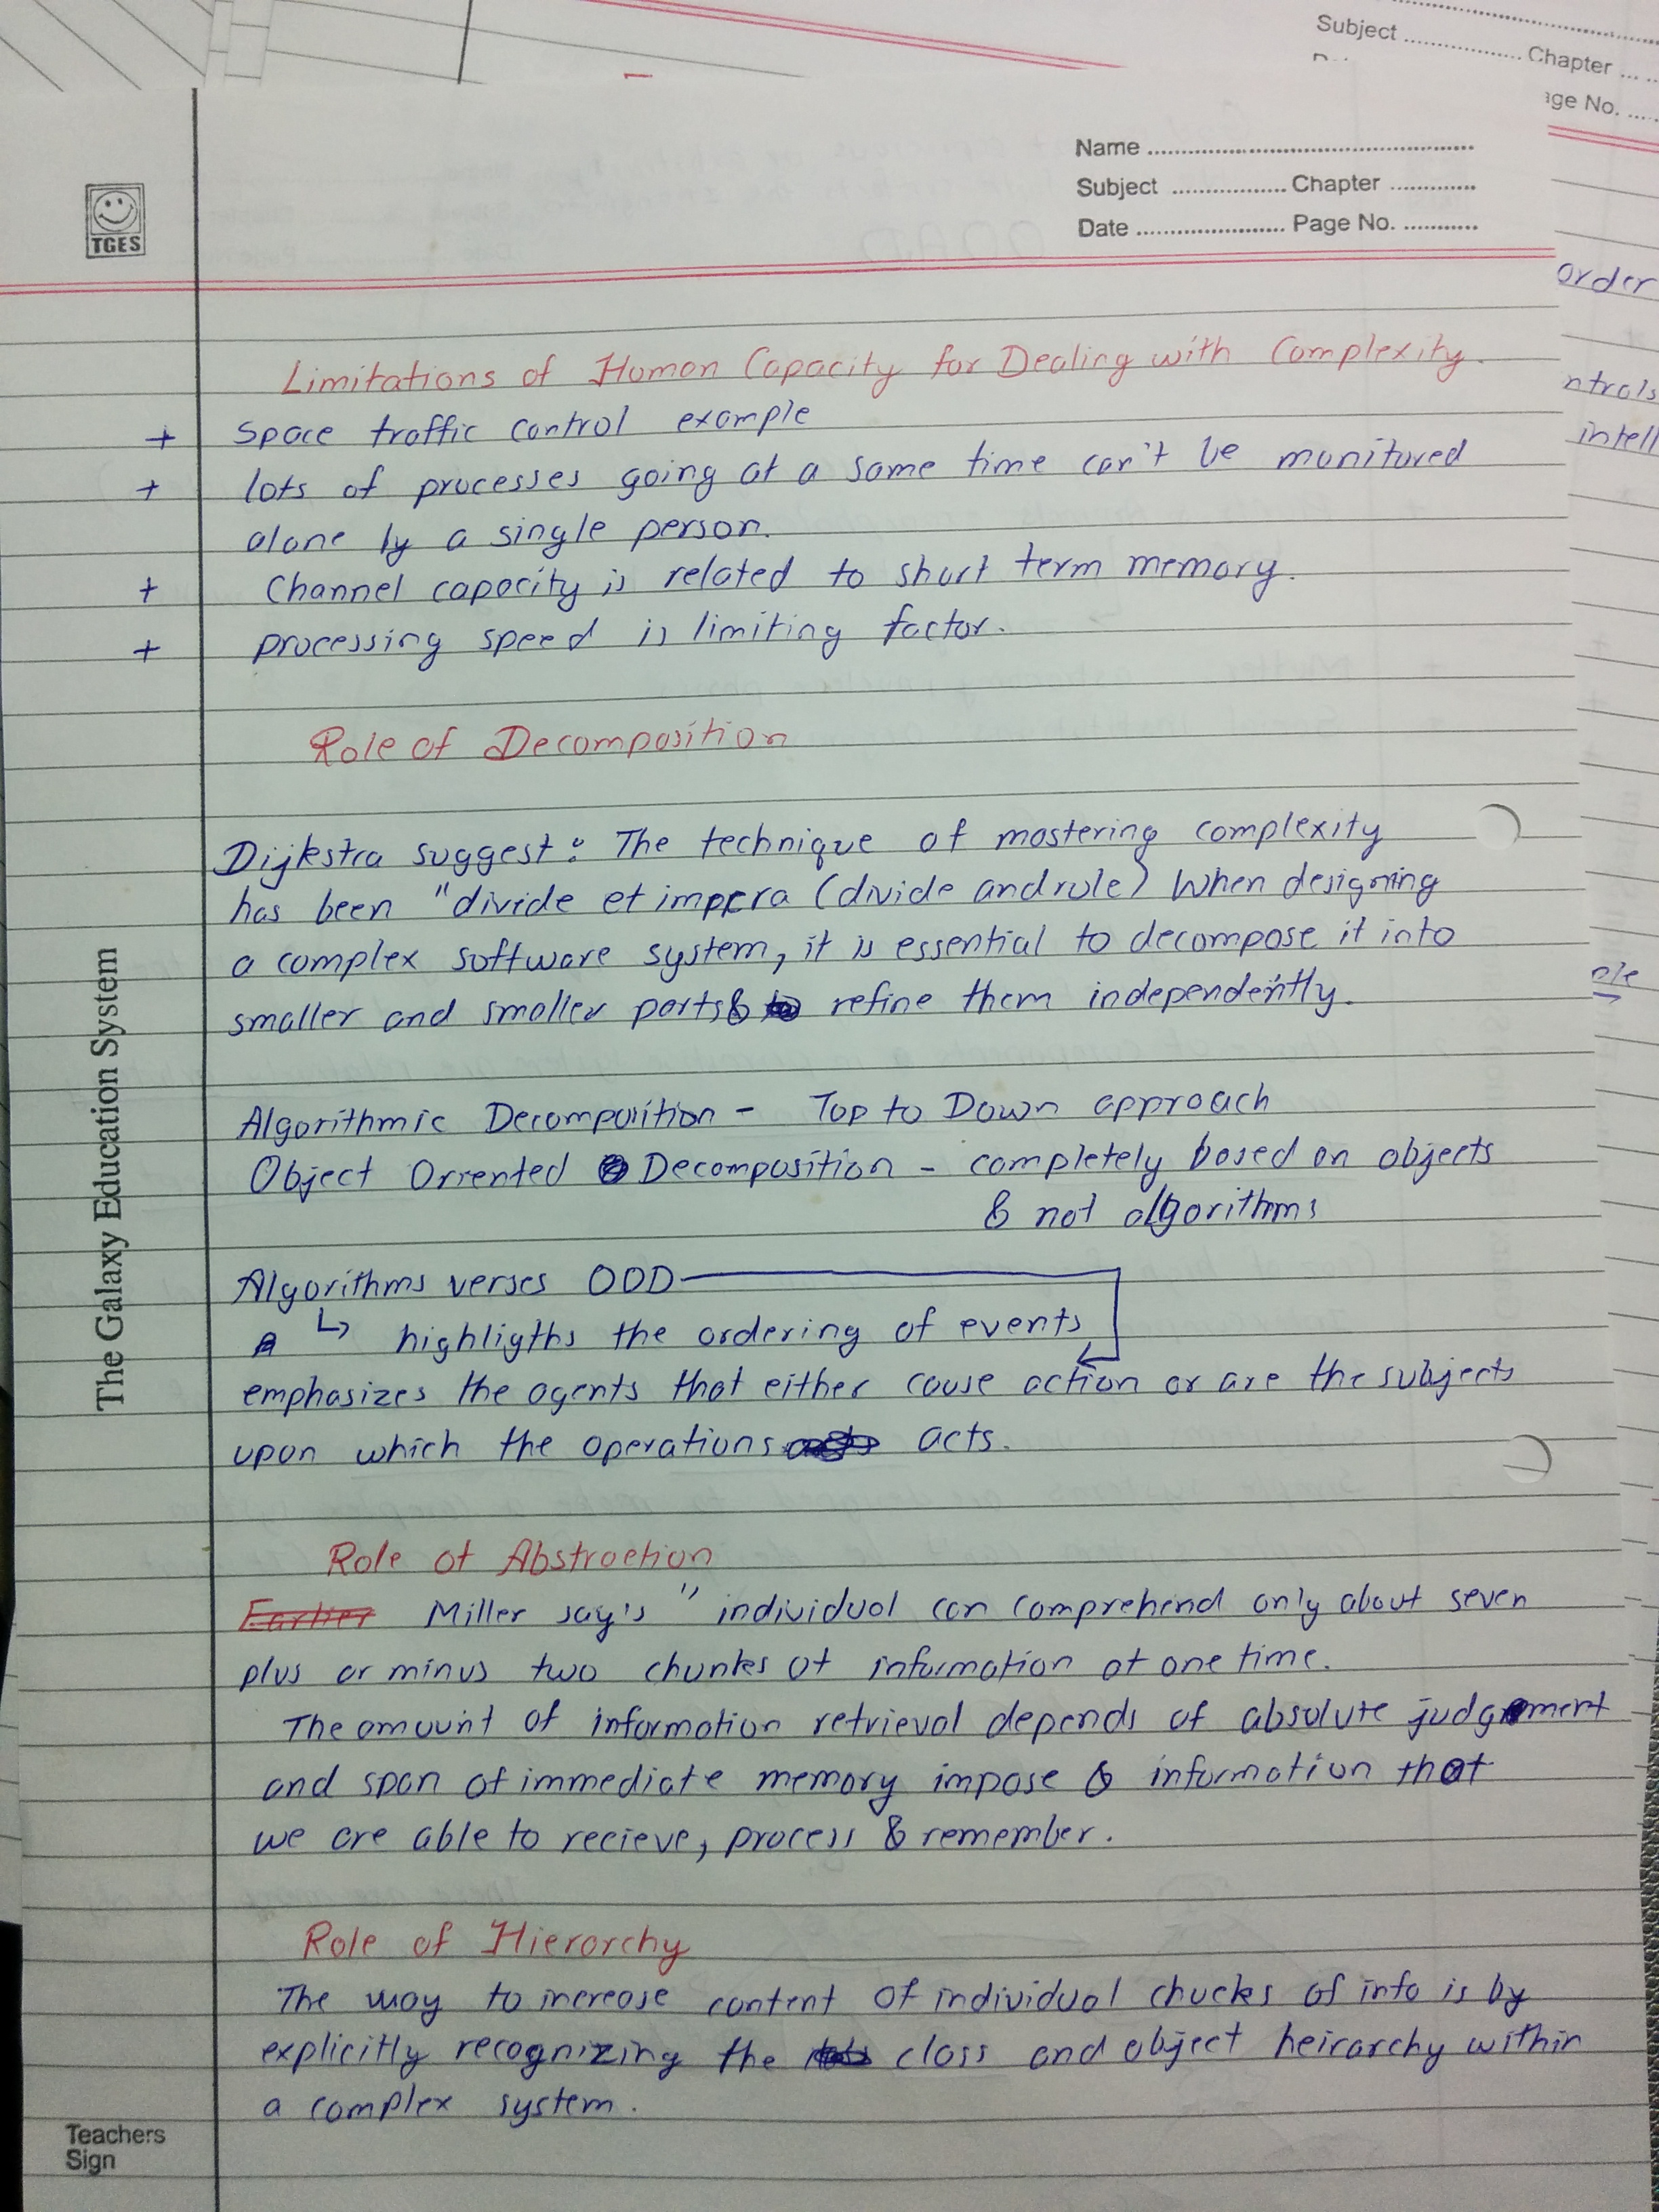 Subject ............... Chapter ......
age No. .....
Name ................................................
Subject ................. Chapter .............
Date ...................... Page No. ...........
TGES
order
Limitations of Human Capacity for Dealing with Complexity.
ntrols
+ Space traffic control example
intell
+ lots of processes going at a same time can't be monitored
alone by a single person.
+ Channel capacity is related to short term memory.
+ processing speed is limiting factor.
Role of Decomposition
Dijkstra suggest : The technique of mastering complexity
has been "divide et impera (divide and rule) When designing
a complex software system, it is essential to decompose it into
smaller and smaller parts & refine them independently.
Algorithmic Decomposition - Top to Down approach
Object Oriented Decomposition - completely based on objects
& not algorithms
Algorithms verses OOD
↳ highligths the ordering of events
emphasizes the agents that either cause action or are the subjects
upon which the operations acts.
Role of Abstraction
Earlier Miller say's " individual can comprehend only about seven
plus or minus two chunks of information at one time.
The amount of information retrieval depends of absolute judgement
and span of immediate memory impose & information that
we are able to recieve, process & remember.
Role of Hierarchy
The way to increase content of individual chucks of info is by
explicitly recognizing the class and object heirarchy within
a complex system.
The Galaxy Education System
Teachers
Sign